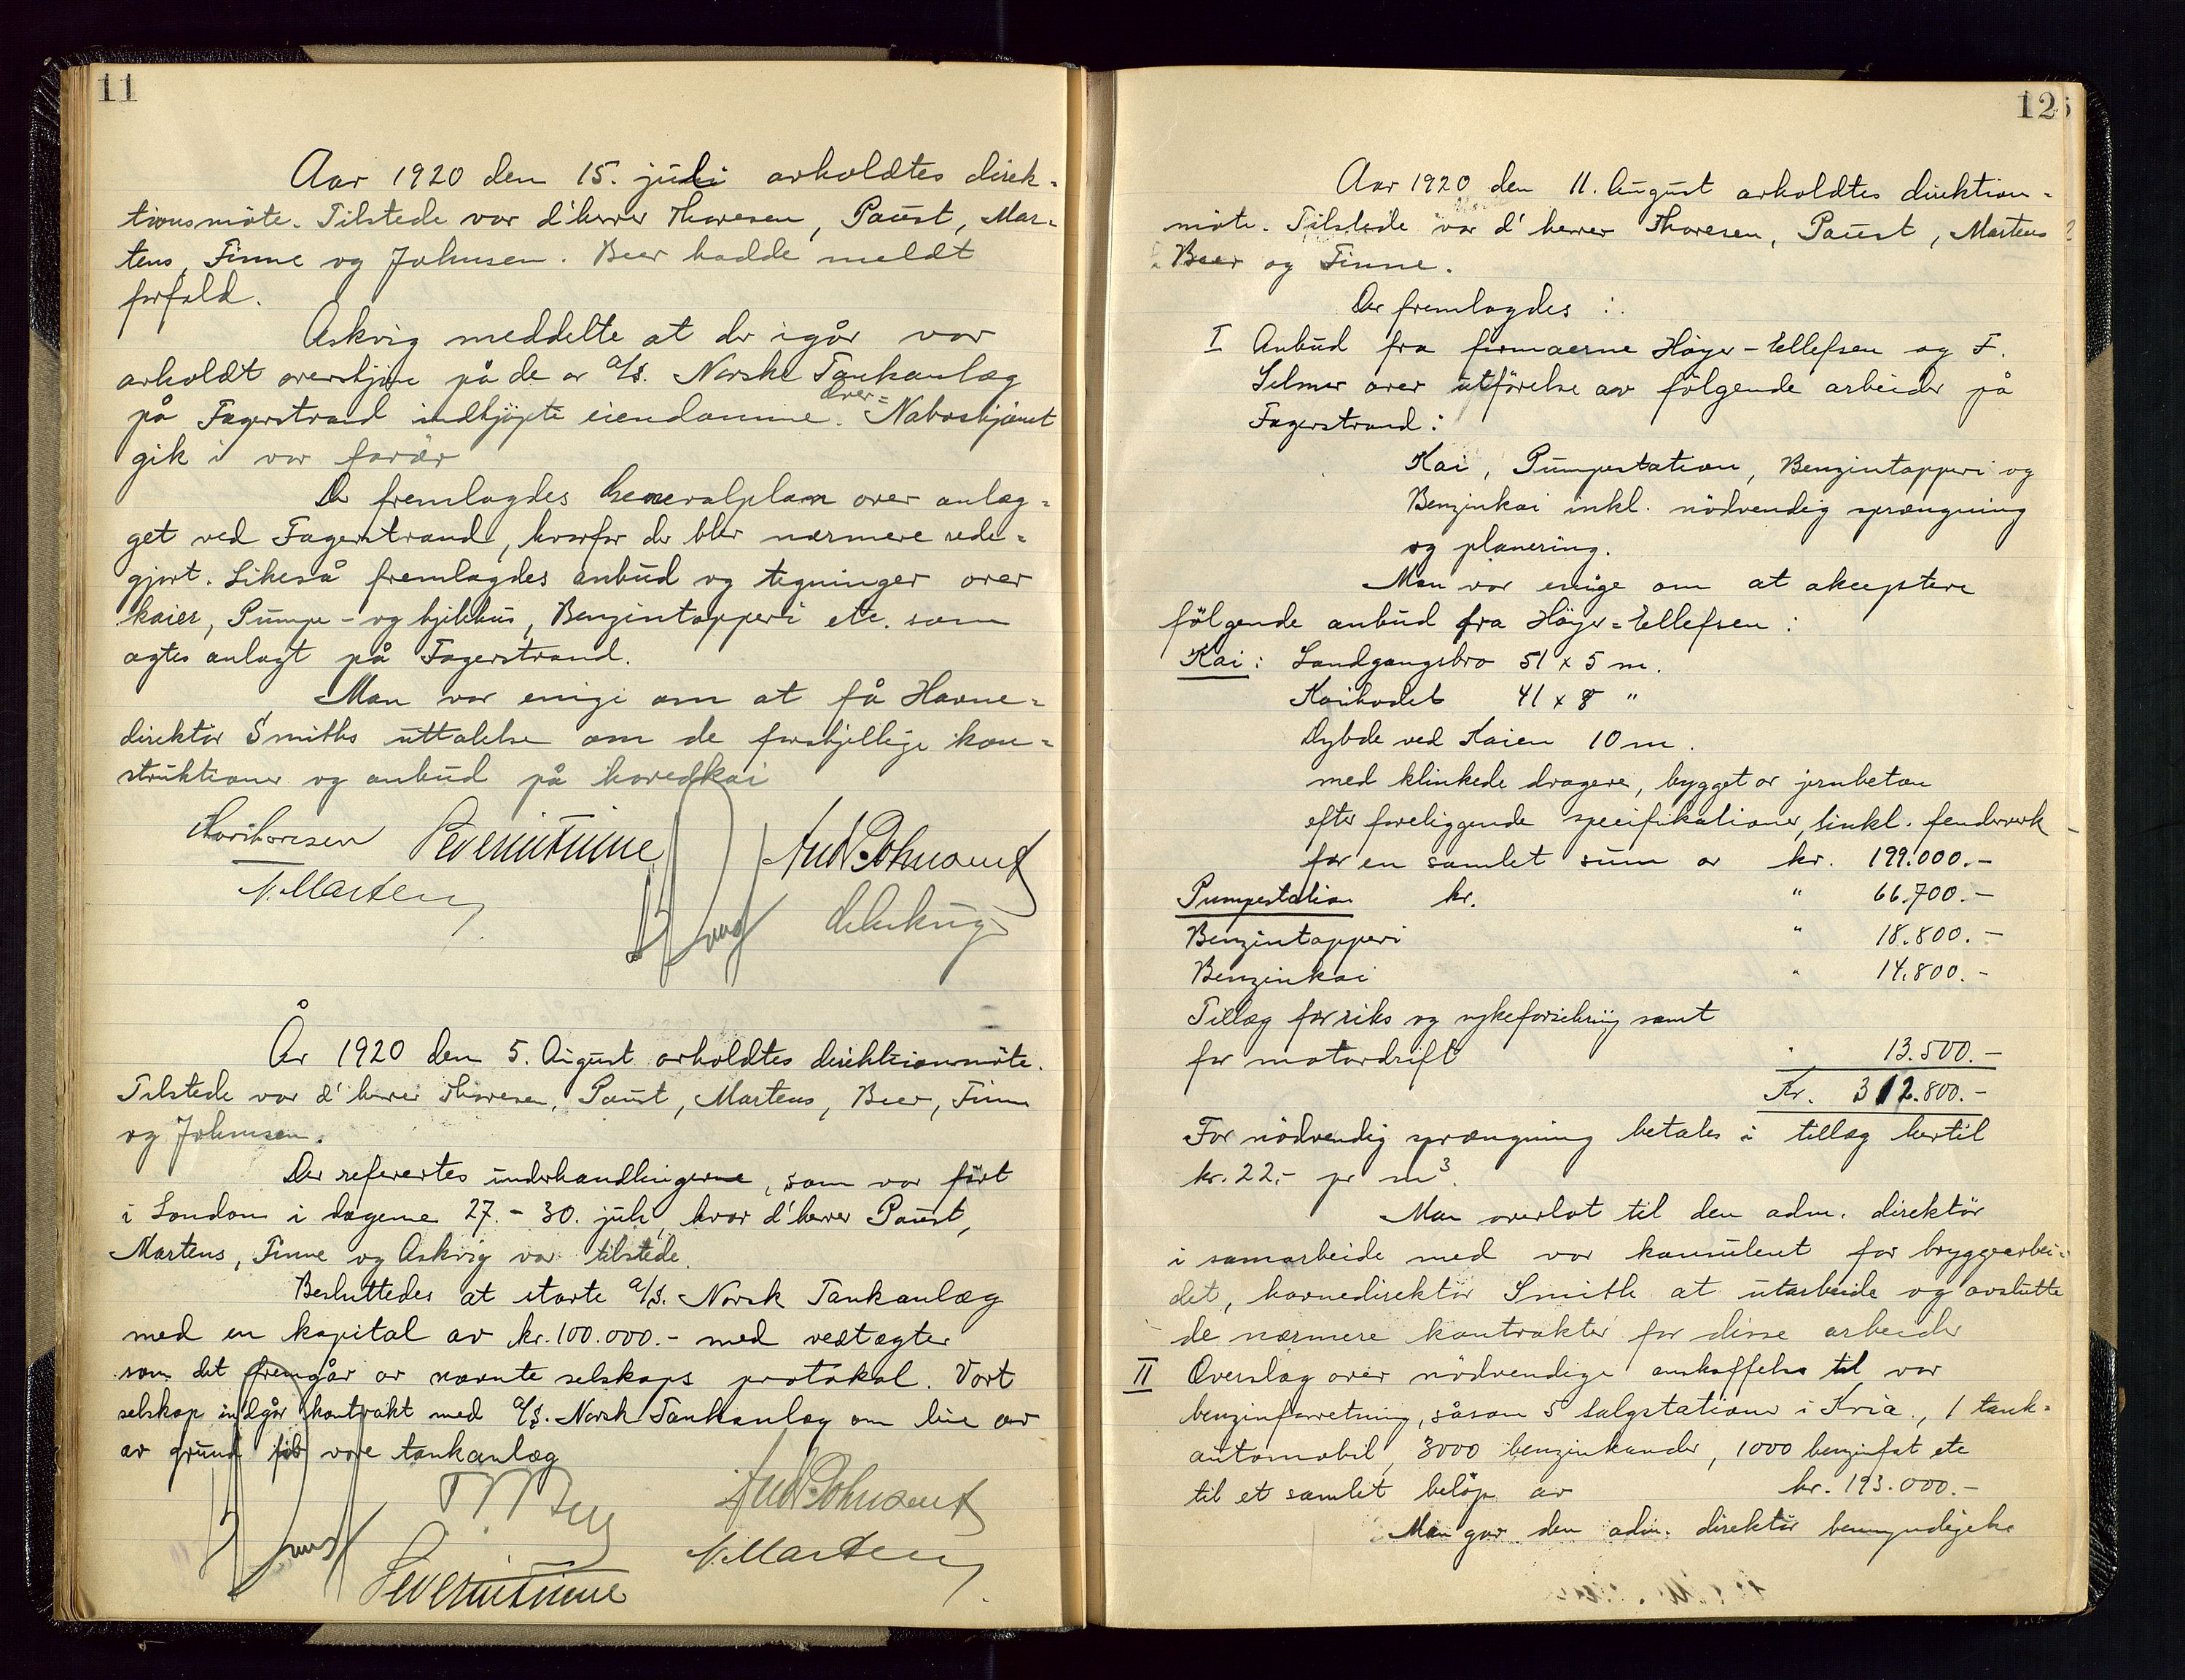 11
Aar 1920 den 15. juli avholdtes direk-
tionsmöte. Tilstede var d'herrer Thoresen, Paust, Mar-
tens, Finne og Johnsen. Beer hadde meldt
forfald.
Askvig meddelte at der igår var
avholdt overskjön på de av A/S. Norsk Tankanlæg
på Fagerstrand indkjöpte eiendomme. Naboover-skjönnet
gik i vor favör
Der fremlagdes Generalplan over anlæg-
get ved Fagerstrand, hvorfor der blev nærmere rede-
gjort. Likeså fremlagdes anbud og tegninger over
kaier, Pumpe- og kjelehus, Benzintapperi etc. som
agtes anlagt på Fagerstrand.
Man var enige om at få Havne-
direktör Smiths uttalelse om de forskjellige kon-
struktioner og anbud på hovedkai
Thorthoresen Severin Finne And. Johnsen
N. Martens Paust Askvig
År 1920 den 5. August avholdtes direktionsmöte.
Tilstede var d'herrer Thoresen, Paust, Martens, Beer, Finne
og Johnsen.
Der refereertes underhandlingerne, som var fört
i London i dagene 27.-30. juli, hvor d'herrer Paust,
Martens, Finne og Askvig var tilstede.
Besluttedes at starte A/S. Norsk Tankanlæg
med en kapital av kr. 100.000.- med vedtægter
som det fremgår av nævnte selskaps protokol. Vort
selskap indgår kontrakt med A/S. Norsk Tankanlæg om leie av
av grund til vore tankanlæg
Paust And. Johnsen
Severin Finne N. Martens
12
Aar 1920 den 11. August avholdtes direktion-
möte. Tilstede var d'herrer Thoresen, Paust, Martens
Beer og Finne.
Der fremlagdes :
I Anbud fra firmaerne Höyer-Ellefsen og F.
Selmer over utförelse av fölgende arbeider på
Fagerstrand:
Kai, Pumpestation, Benzintapperi og
Benzinkai inkl. nödvendig sprængning
og planering.
Man var enige om at akceptere
fölgende anbud fra Höyer-Ellefsen :
Kai: Landgangsbro 51 x 5 m.
Kaihodet 41 x 8 "
Dybde ved Kaien 10 m.
med klinkede dragere, bygget av jernbeton
efter foreliggende specifikationer, inkl. fenderverk
for en samlet sum av kr. 199.000.-
Pumpestation kr. " 66.700.-
Benzintapperi " 18.800.-
Benzinkai " 14.800.-
Tillæg for riks og sykeforsikring samt
for motordrift " 13.500.-
Kr. 312.800.-
For nödvendig sprængning betales i tillæg hertil
kr. 22.- pr m³.
Man overlot til den adm. direktör
i samarbeide med vor konsulent for bryggearbei-
det, havnedirektör Smith at utarbeide og avslutte
de nærmere kontrakter for disse arbeider
II Overslag over nödvendige anskaffelser til vor
benzinforretning, såsom 5 salgstationer i Kria., 1 tank-
automobil, 3000 benzinkander, 1000 benzinfat etc
til et samlet belöp av kr. 193.000.-
Man gav den adm. direktör bemyndigelse